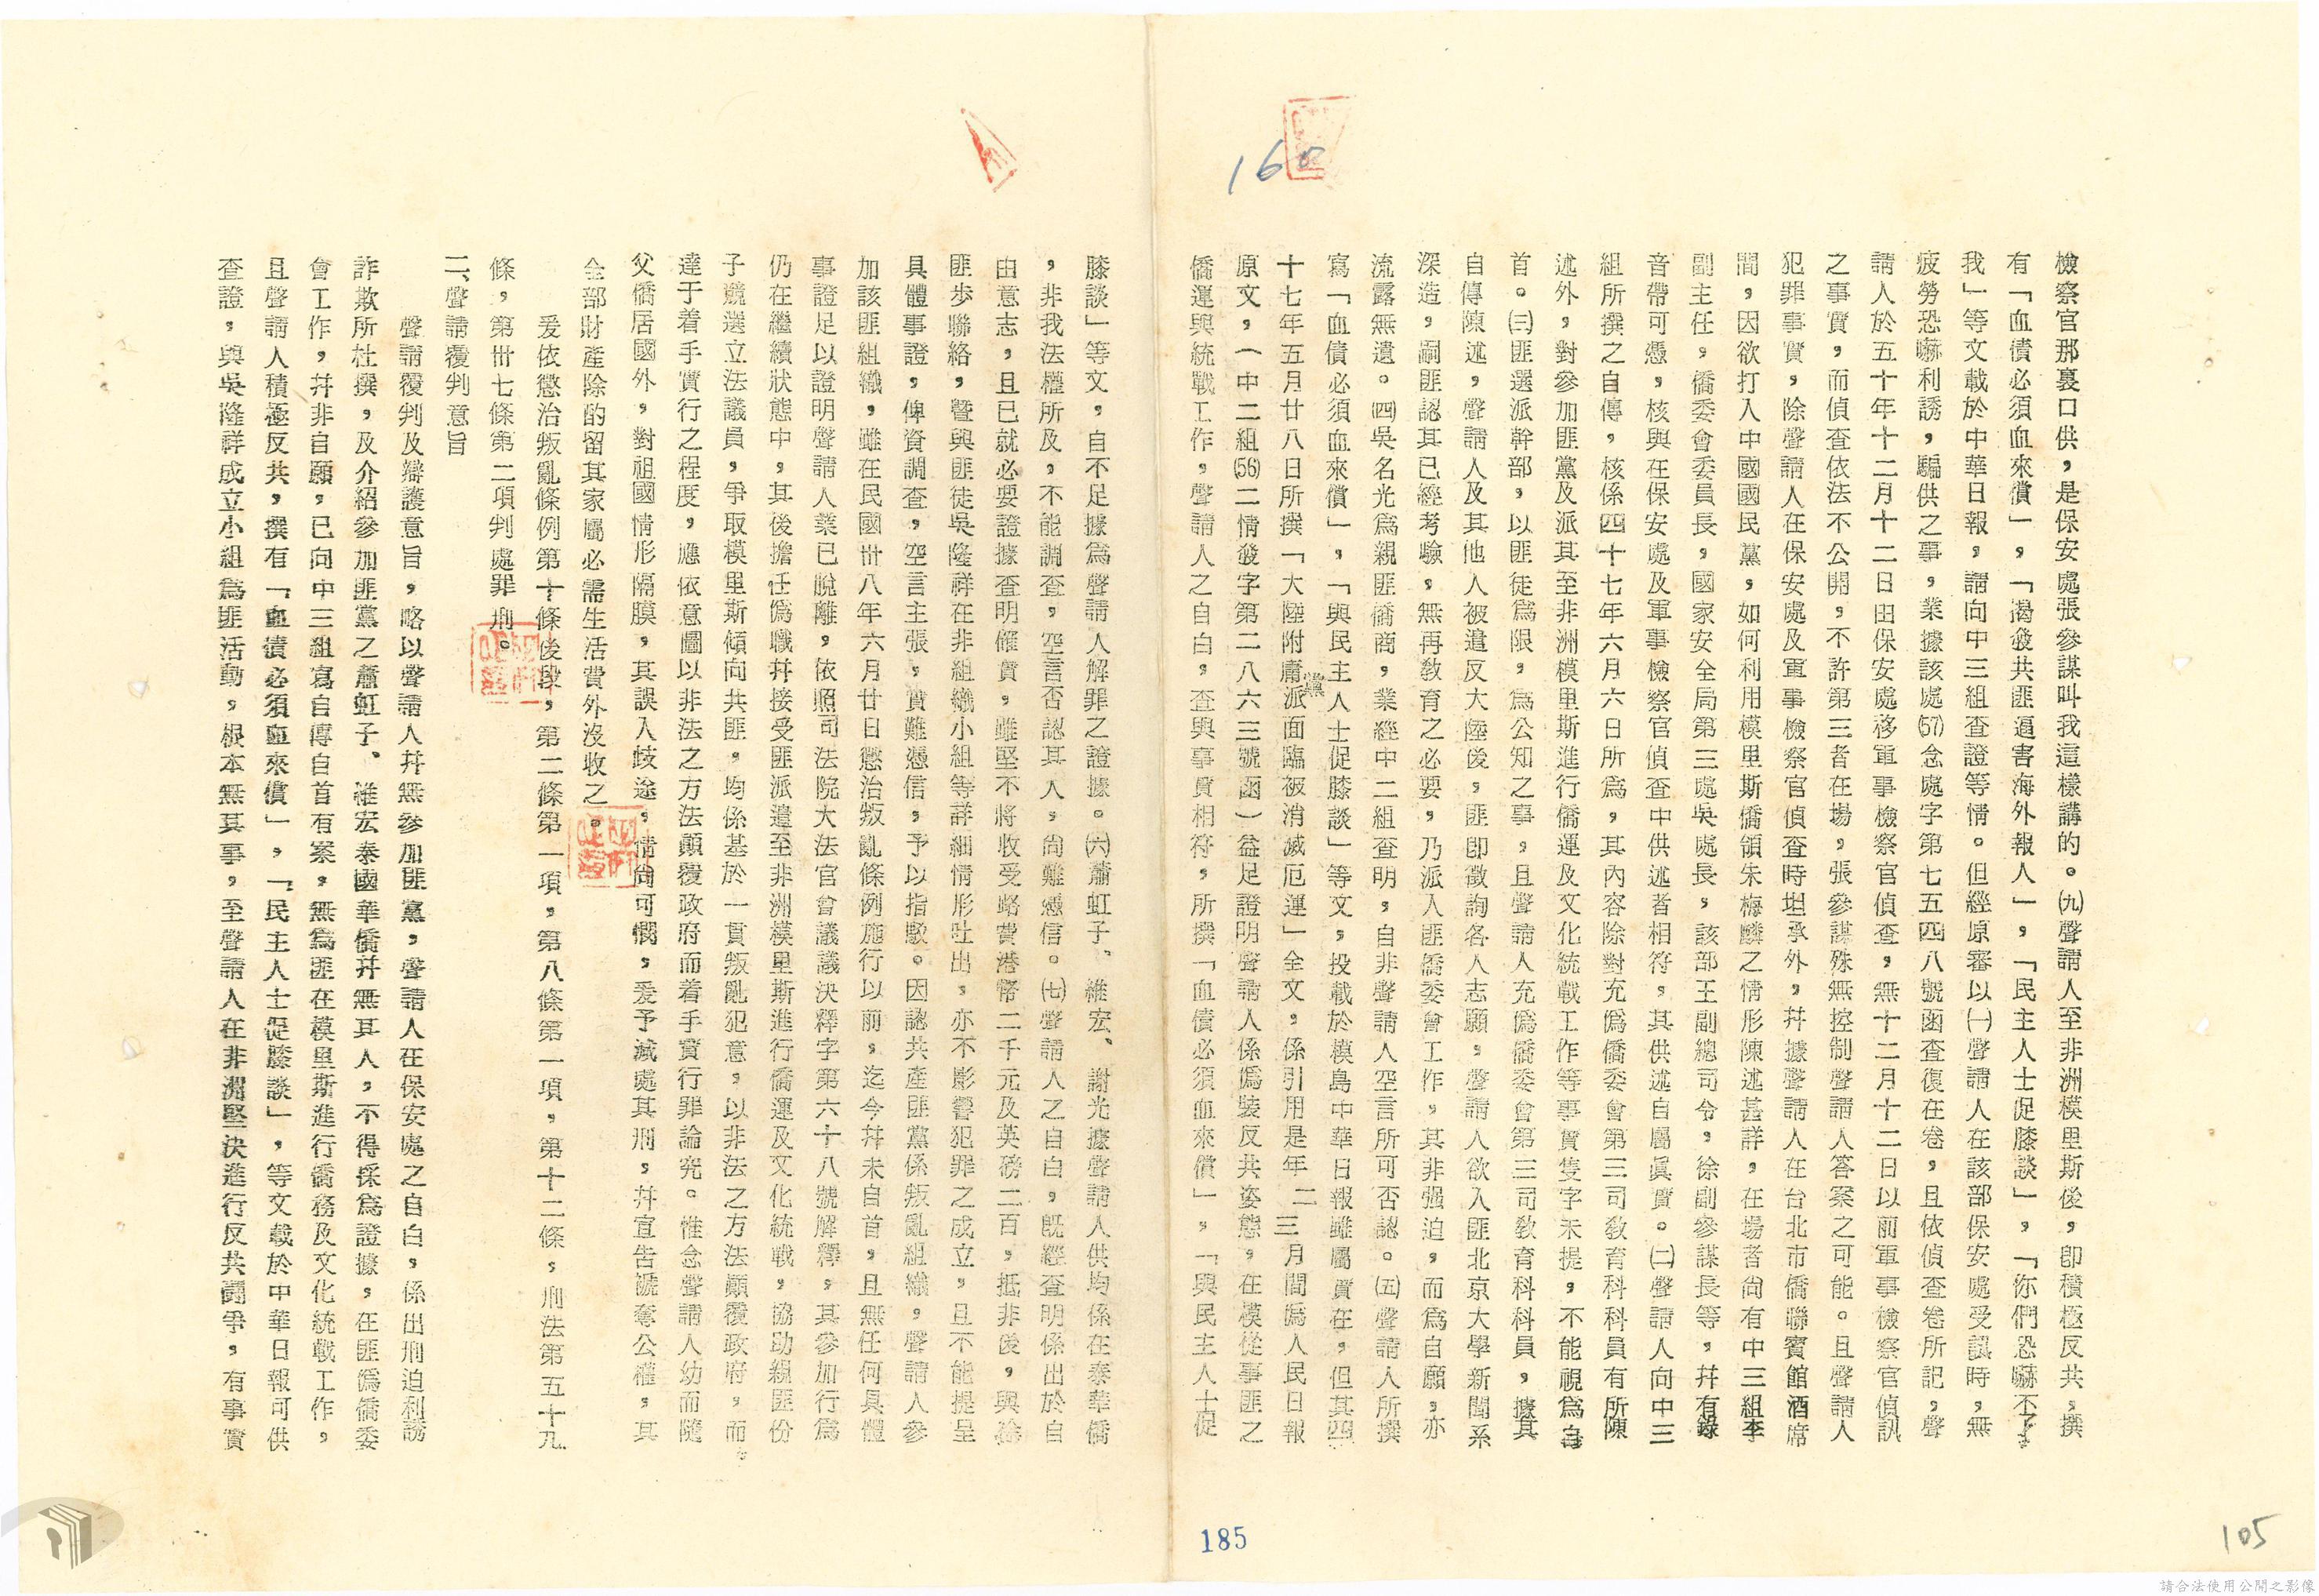 檢察官那裏口供，是保安處張參謀叫我這樣講的。㈨聲請人至非洲模里斯後，卽積極反共，撰
有「血債必須血來償」，「揭發共匪逼害海外報人」，「民主人士促膝談」，「你們恐嚇不了
我」等文載於中華日報，請向中三組查證等情。但經原審以㈠聲請人在該部保安處受訊時，無
疲勞恐嚇利誘，騙供之事，業據該處(57)念處字第七五四八號函查復在卷，且依偵查卷所記，聲
請人於五十年十二月十二日由保安處移軍事檢察官偵查，無十二月十二日以前軍事檢察官偵訊
之事實，而偵查依法不公開，不許第三者在場，張參謀殊無控制聲請人答案之可能。且聲請人
犯罪事實，除聲請人在保安處及軍事檢察官偵查時坦承外，幷據聲請人在台北市僑聯賓館酒席
間，因欲打入中國國民黨，如何利用模里斯僑領朱梅麟之情形陳述甚詳，在場者尙有中三組李
副主任，僑委會委員長，國家安全局第三處吳處長，該部王副總司令，徐副參謀長等，幷有錄
音帶可憑，核與在保安處及軍事檢察官偵查中供述者相符，其供述自屬眞實。㈡聲請人向中三
組所撰之自傳，核係四十七年六月六日所為，其內容除對充偽僑委會第三司敎育科科員有所陳
述外，對參加匪黨及派其至非洲模里斯進行僑運及文化統戰工作等事實隻字未提，不能視為自
首。㈢匪選派幹部，以匪徒為限，為公知之事，且聲請人充偽僑委會第三司敎育科科員，據其
自傳陳述，聲請人及其他人被遣反大陸後，匪卽徵詢各人志願，聲請人欲入匪北京大學新聞系
深造，嗣匪認其已經考驗，無再敎育之必要，乃派入匪僑委會工作，其非强迫，而為自願，亦
流露無遺。㈣吳名光為親匪僑商，業經中二組查明，自非聲請人空言所可否認。㈤聲請人所撰
寫「血債必須血來償」，「與民主人士促膝談」等文，投載於模島中華日報雖屬實在，但其四
十七年五月廿八日所撰「大陸附庸黨派面臨被消滅厄運」全文，係引用是年二三月間偽人民日報
原文，（中二組(56)二情發字第二八六三號函）益足證明聲請人係偽裝反共姿態，在模從事匪之
僑運與統戰工作，聲請人之自白，查與事實相符，所撰「血債必須血來償」，「與民主人士促
膝談」等文，自不足據為聲請人解罪之證據。㈥蕭虹子、維宏、謝光據聲請人供均係在泰華僑
，非我法權所及，不能調查，空言否認其人，尙難憑信。㈦聲請人之自白，旣經查明係出於自
由意志，且已就必要證據查明確實，雖堅不將收受路費港幣二千元及英磅二百，抵非後，與徐
匪步聯絡，曁與匪徒吳隆祥在非組織小組等詳細情形吐出，亦不影響犯罪之成立，且不能提呈
具體事證，俾資調查，空言主張，實難憑信，予以指駁。因認共產匪黨係叛亂組織，聲請人參
加該匪組織，雖在民國卅八年六月廿日懲治叛亂條例施行以前，迄今幷未自首，且無任何具體
事證足以證明聲請人業已脫離，依照司法院大法官會議議決釋字第六十八號解釋，其參加行為
仍在繼續狀態中，其後擔任偽職幷接受匪派遣至非洲模里斯進行僑運及文化統戰，協助親匪份
子競選立法議員，爭取模里斯傾向共匪，均係基於一貫叛亂犯意，以非法之方法顚覆政府，而
達于着手實行之程度，應依意圖以非法之方法顚覆政府而着手實行罪論究。惟念聲請人幼而隨
父僑居國外，對祖國情形隔膜，其誤入歧途，情尙可憫，爰予減處其刑，幷宣告褫奪公權，其
全部財產除酌留其家屬必需生活費外沒收之。
爰依懲治叛亂條例第十條後段，第二條第一項，第八條第一項，第十二條，刑法第五十九
條，第卅七條第二項判處罪刑。
二、聲請覆判意旨
聲請覆判及辯護意旨，略以聲請人幷無參加匪黨，聲請人在保安處之自白，係出刑迫利誘
詐欺所杜撰，及介紹參加匪黨之蕭虹子、維宏泰國華僑幷無其人，不得採為證據，在匪偽僑委
會工作，幷非自願，已向中三組寫自傳自首有案，無為匪在模里斯進行僑務及文化統戰工作，
且聲請人積極反共，撰有「血債必須血來償」，「民主人士促膝談」，等文載於中華日報可供
查證，與吳隆祥成立小組為匪活動，根本無其事，至聲請人在非洲堅決進行反共鬪爭，有事實
160
185
105
請合法使用公開之影像